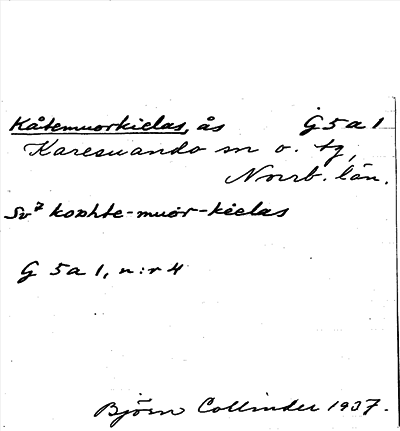 Kåtemuorkielas, ås G5a1
Karesuando sn o. tg,
Norrb. län.
Sv7 koxhte-muor-kielas
G 5a1, n:r 4
Björn Collinder 1937.